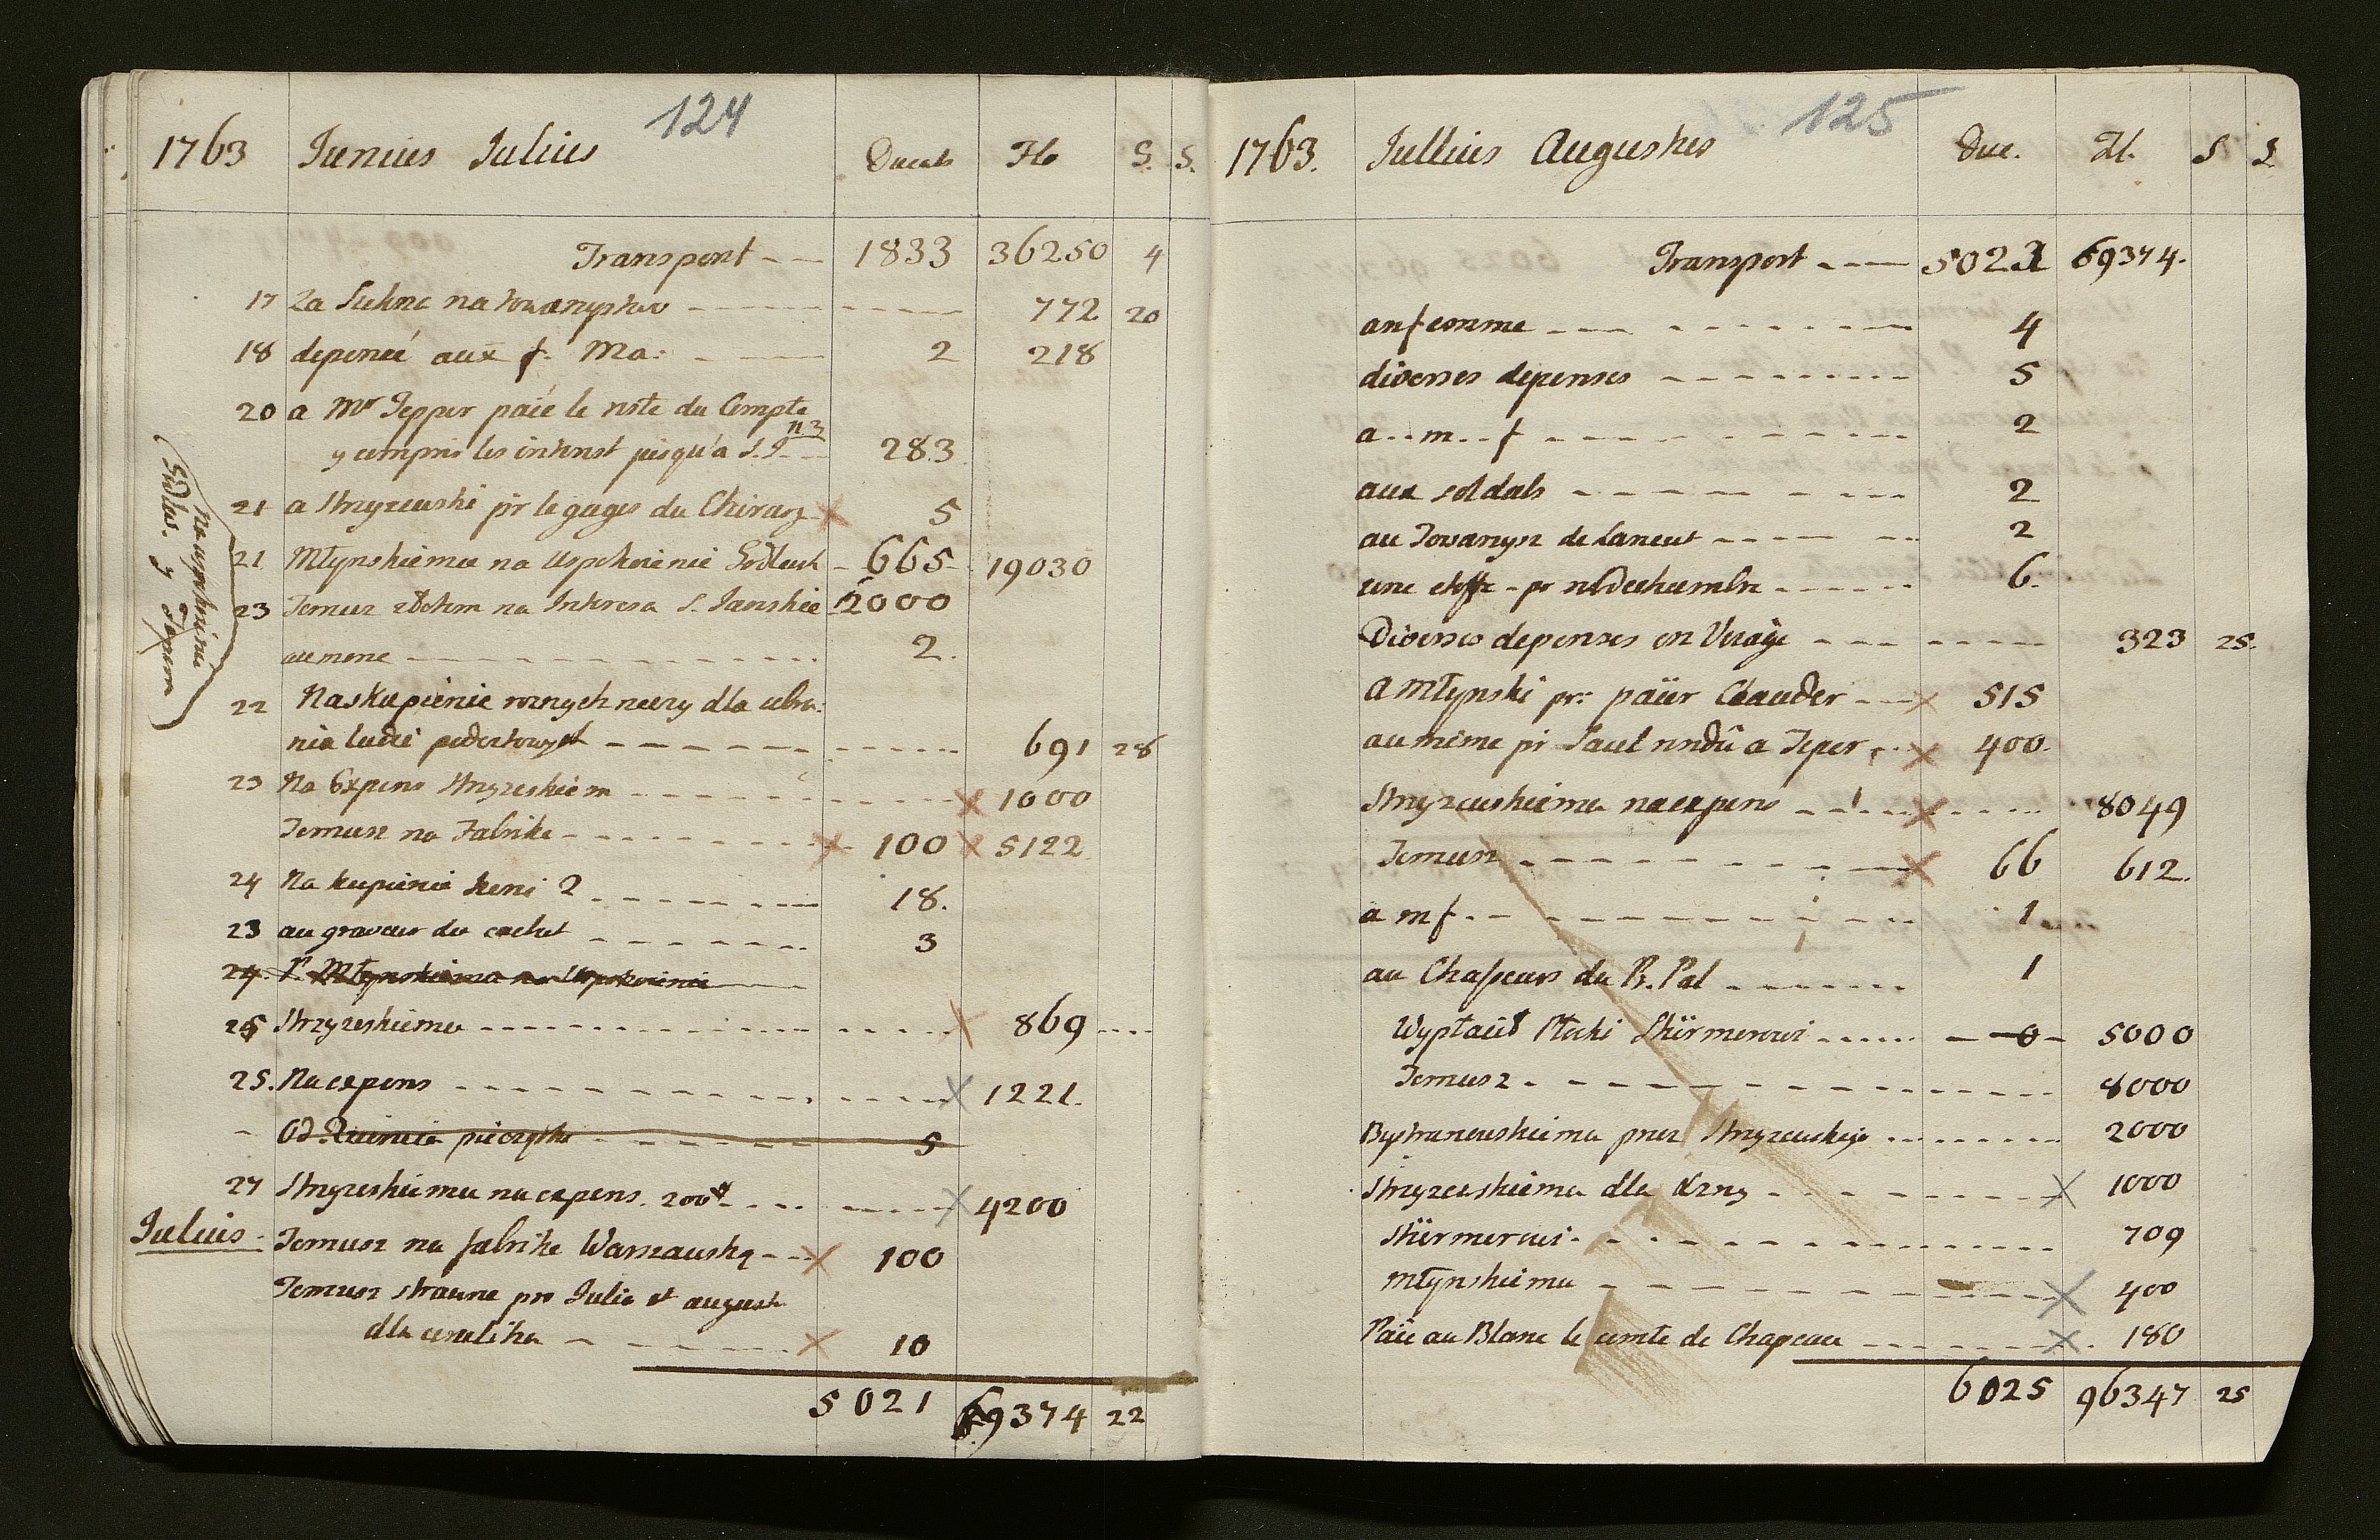 124
1763 Junius Julius Ducats Flo S. S.
Transport 1833 36250 4
17 Za Sukno na towarzystwo 772 20
18 depencé aux f: Ma: 2 218
20 a Mr Tepper paié le note du Compte
n 3
y compris les interest jusqu'a S. J. 283
21 a Strzyzewski pr le gages du Chirurg 5
21 Młynskiemu na Uspokoienie 665 19030
23 Temuz na Interesa S. Janskie 2000
aumone 2.
22 Na skupienie roznych rzeczy dla ubra:
nia ludzi 691 28
23 Na Expens Strzyzeskiem 1000
Temusz na Fabrike 100 5122
24 Na kupienie koni 2 18.
23 au graveur du cachet 3
24. P. Młynskiemu na Uspokoienie
25 Strzyzeskiemu 869
25. Na expens 1221.
Od pieczątki 5
27 Strzyzeskiemu na expens. 200 4200
Julius. Temusz na fabrike Warszauską 100
Temusz strawne pro Julio et august
dla 10
5021 69374 22
Na uspokoienie
y Tepera
125
1763. Jullius Augustus Duc. Fl. S S.
Transport 5021 69374.
4
diverses depenses 5
a..m..f 2
aux soldats 2
au Towarzysz de Lancut 2
une etoffe pr 6.
Diverses depenses en Voiage 323 25.
a Młynski pr: païer 515
au même pr a Teper 400.
Strzyzewskiemu na expens 8049
Temusz 66 612.
a m f. 1
au Chasseurs du P. Pal 1
Wypłacił Stürmerowi 0 5000
Temusz. 8000
Bystranowskiemu przez Strzyzewskego 2000
Strzyzewskiemu dla 1000
Stürmerowi. 709
Młynskiemu 400
Païe au Blanc le comte de Chapeau 180
6025 96347 25